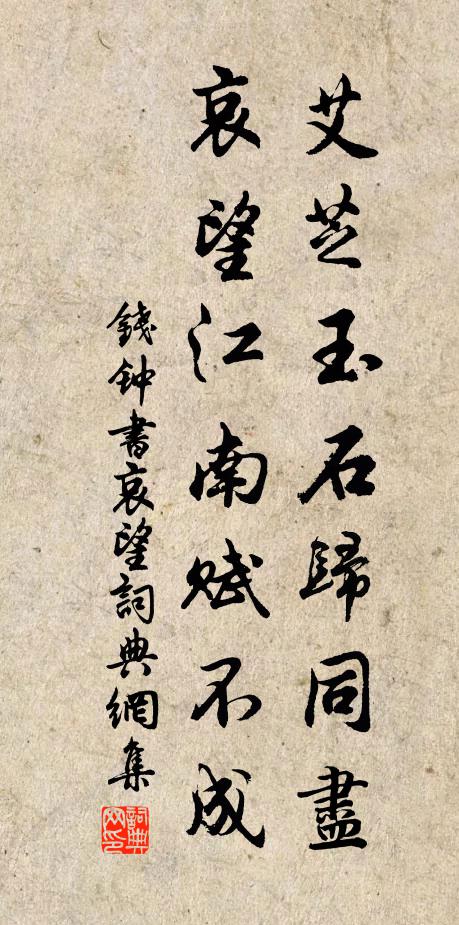 艾芝玉石歸同盡
哀望江南賦不成
錢鈡書哀望詞典網集
詞典網印